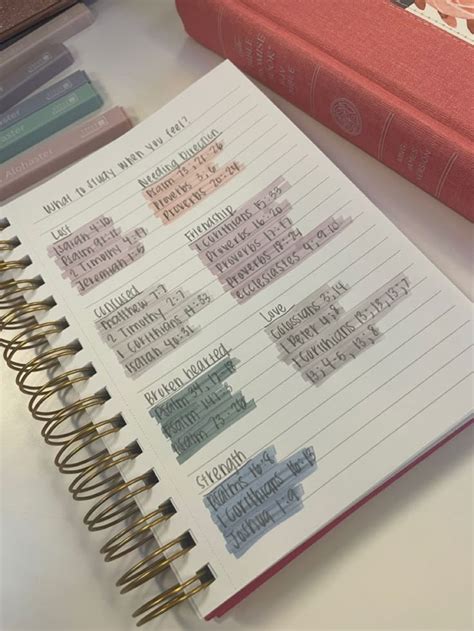 What to Study When You Feel?
Needing Direction
Psalm 73, 21-26
Proverbs 3, 6
Proverbs 20:24
Lost
Isaiah 41:10
Psalm 91:
2 Timothy 4:17
Jeremiah 1:5
Friendship
1 Corinthians 15:33
Proverbs 16:
Proverbs 17:17
Proverbs
ecclesiastes 4, 9, 10
Confused
matthew 7:7
2 Timothy 2:7
1 Corinthians 14:33
Isaiah 40:31
Love
Colossians 3, 14
1 Peter 4:8
1 Corinthians 13, 13, 13:7
13:4-5, 13:8
Broken hearted
Psalm 34, 17-18
Psalm 147:3
Psalm 73:26
Strength
Psalms 16:8
1 Corinthians 16:13
Joshua 1:9